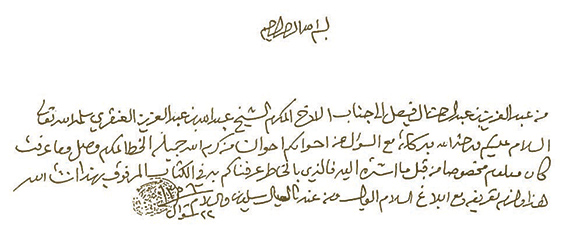 بسم الله الرحمن الرحيم
من عبد العزيز بن عبد الرحمن الفيصل الى جناب الاخ المكرم الشيخ عبد الله بن عبد العزيز العنقري سلمه الله تعالى
السلام عليكم ورحمة الله وبركاته مع السؤال عن احوالكم احوالنا من كرم الله جميله الخط المكرم وصل وما عرفت
كان معلوم مخصوصا من قبل ما اشرة اليه فالذي بالخاطر عرفناكم به في الكتاب المرفوق بهذا ان شاء الله
هذا ما لزم تعريفه مع ابلاغ السلام العيال ومن عندنا العيال يسلمون والسلام
٢٢ شوال